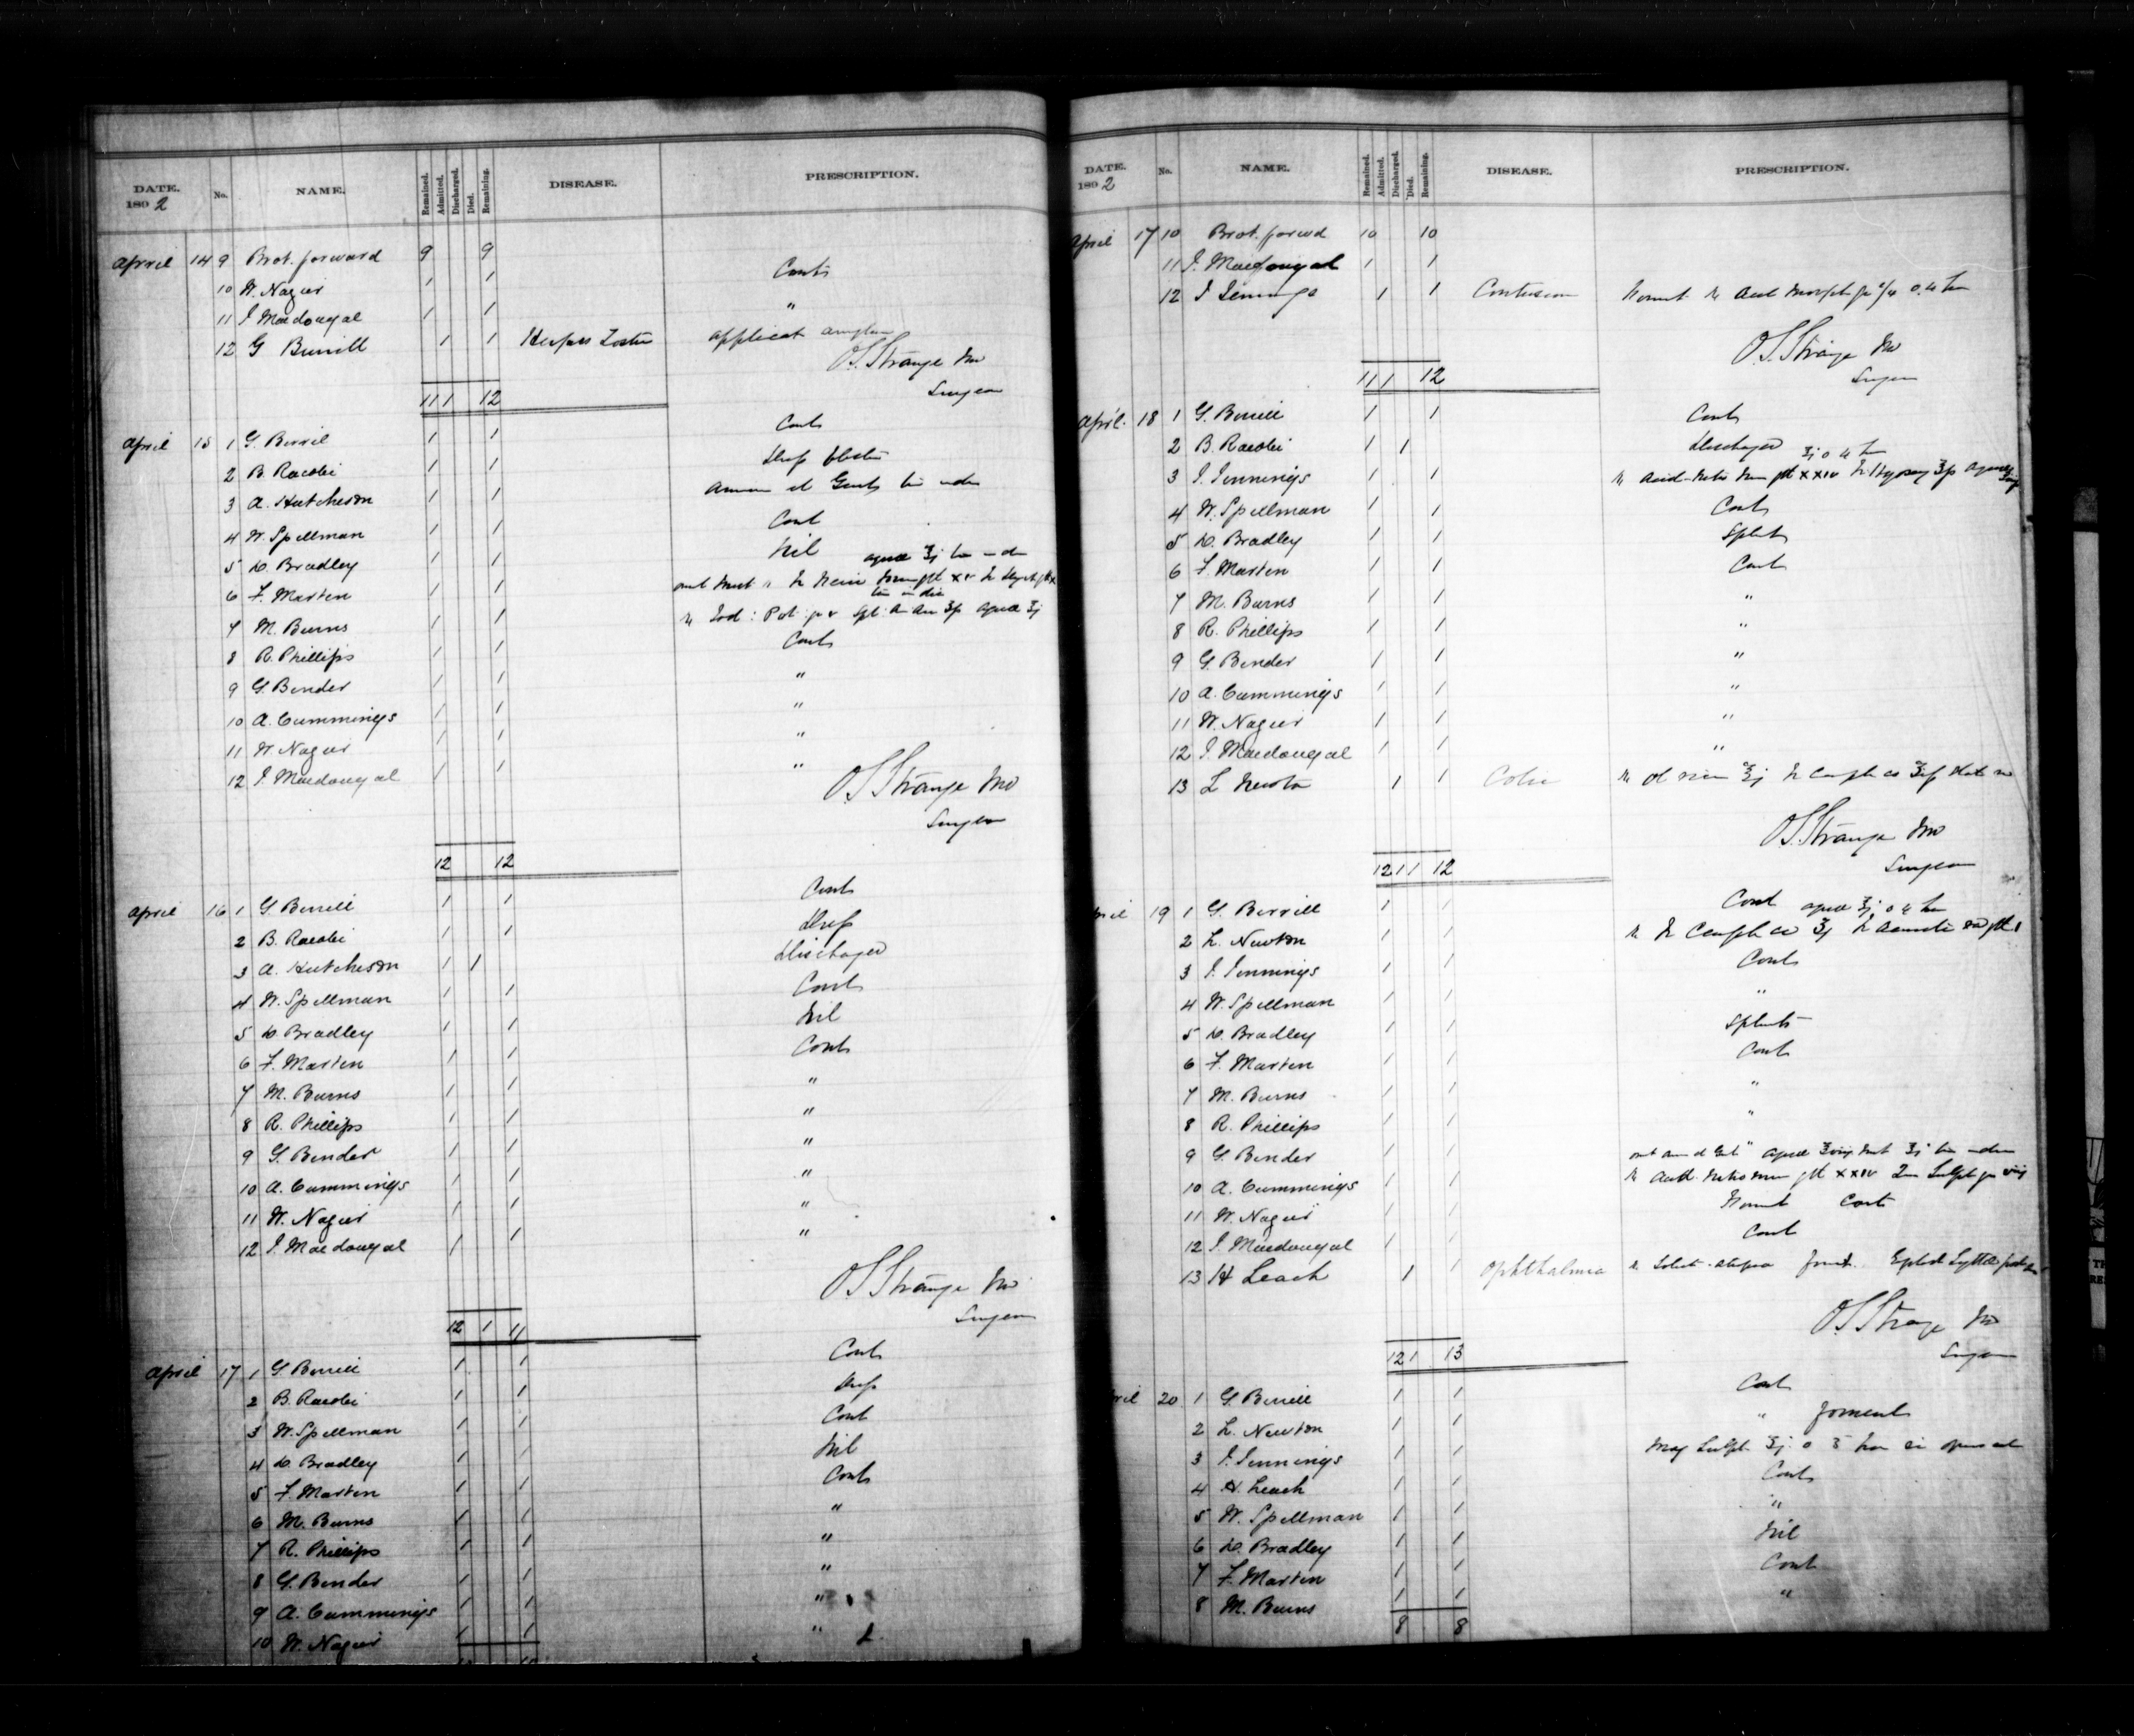 DATE. 1892 No. NAME. Remained. Admitted. Discharged. Died. Remaining. DISEASE. PRESCRIPTION.
April 14 9 Brot. forward 9 9
10 W. Nagui 1 1 Cont
11 J Macdougal 1 1 "
12 G Burrill 1 1 Herpes Zoster applicat
O.S. Strange MD
Surgeon
11 1 12
April 15 1 G. Berril 1 1 Cont
2 B. Racobi 1 1
3 A. Hutcheson 1 1
4 W. Spellman 1 1 Cont
5 D. Bradley 1 1 Nil
6 F. Marten 1 1
7 M. Burns 1 1
8 R. Phillips 1 1 Cont
9 G. Bender 1 1 "
10 A. Cummings 1 1 "
11 W. Nagui 1 1 "
12 J. Macdougal 1 1 "
O.S. Strange MD
Surgeon
12 12
April 16 1 G. Berrill 1 1 Cont
2 B. Racobi 1 1
3 A. Hutcheson 1 1 Discharged
4 W. Spellman 1 1 Cont
5 D. Bradley 1 1 Nil
6 F. Marten 1 1 Cont
7 M. Burns 1 1 "
8 R. Phillips 1 1 "
9 G. Bender 1 1 "
10 A. Cummings 1 1 "
11 W. Nagui 1 1 "
12 J. Macdougal 1 1 "
O.S. Strange MD
Surgeon
12 1 11
April 17 1 G. Berrill 1 1 Cont
2 B. Racobi 1 1
3 W. Spellman 1 1 Cont
4 D. Bradley 1 1 Nil
5 F. Marten 1 1 Cont
6 M. Burns 1 1 "
7 R. Phillips 1 1 "
8 G. Bender 1 1 "
9 A. Cummings 1 1 "
10 W. Nagui 1 1 "
DATE. 1892 No. NAME. Remained. Admitted. Discharged. Died. Remaining. DISEASE. PRESCRIPTION.
April 17 10 Brot. forwd 10 10
11 J. Macdougal 1 1
12 J Jennings 1 1 Contusion
O.S. Strange MD
Surgeon
11 1 12
April 18 1 G. Berrill 1 1 Cont
2 B. Racobi 1 1 Discharged
3 J. Jennings 1 1
4 W. Spellman 1 1 Cont
5 D. Bradley 1 1 Splint
6 F. Marten 1 1 Cont
7 M. Burns 1 1 "
8 R. Phillips 1 1 "
9 G. Bender 1 1 "
10 A. Cummings 1 1 "
11 W. Nagui 1 1 "
12 J. Macdougal 1 1 "
13 L Newton 1 1 Colic
O.S. Strange MD
Surgeon
12 1 1 12
April 19 1 G. Berrill 1 1 Cont
2 L. Newton 1 1
3 J. Jennings 1 1 Cont
4 W. Spellman 1 1 "
5 D. Bradley 1 1 Splints
6 F. Marten 1 1 Cont
7 M. Burns 1 1 "
8 R. Phillips 1 1 "
9 G. Bender 1 1
10 A. Cummings 1 1
11 W. Nagui 1 1 Cont
12 J. Macdougal 1 1 Cont
13 H Leach 1 1 Ophthalmia
O.S. Strange MD
Surgeon
12 1 13
April 20 1 G. Berrill 1 1 Cont
2 L. Newton 1 1 " foment
3 J. Jennings 1 1 Mag Sulph
4 H. Leach 1 1 Cont
5 W. Spellman 1 1 "
6 D. Bradley 1 1 Nil
7 F. Marten 1 1 Cont
8 M. Burns 1 1 "
8 8